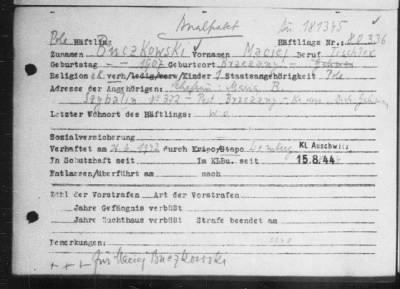 Analpakt Bü 181345
Pole Häftling Häftlings Nr.: 80336
Zunamen Buczkowski Vornamen Maciej Beruf Tischler
Geburtstag - - 1907 Geburtsort Brzezany
Religion rk verh/ledig/verw/Kinder 1 Staatsangehörigkeit Pole
Adresse der Angehörigen: Ehefrau: Maria B.
Nr. 372 - Post Brzezany -
Letzter Wohnort des Häftlings: w.o.
Sozialversicherung
Verhaftet am 26.6.1942 durch Kripo/Stapo Lemberg KL Auschwitz
In Schutzhaft seit Im KLBu. seit 15.8.44
Entlassen/überführt am nach
Zahl der Vorstrafen Art der Vorstrafen
Jahre Gefängnis verbüßt
Jahre Zuchthaus verbüßt Strafe beendet am
Bemerkungen:
+ + + für Maciej Buczkowski